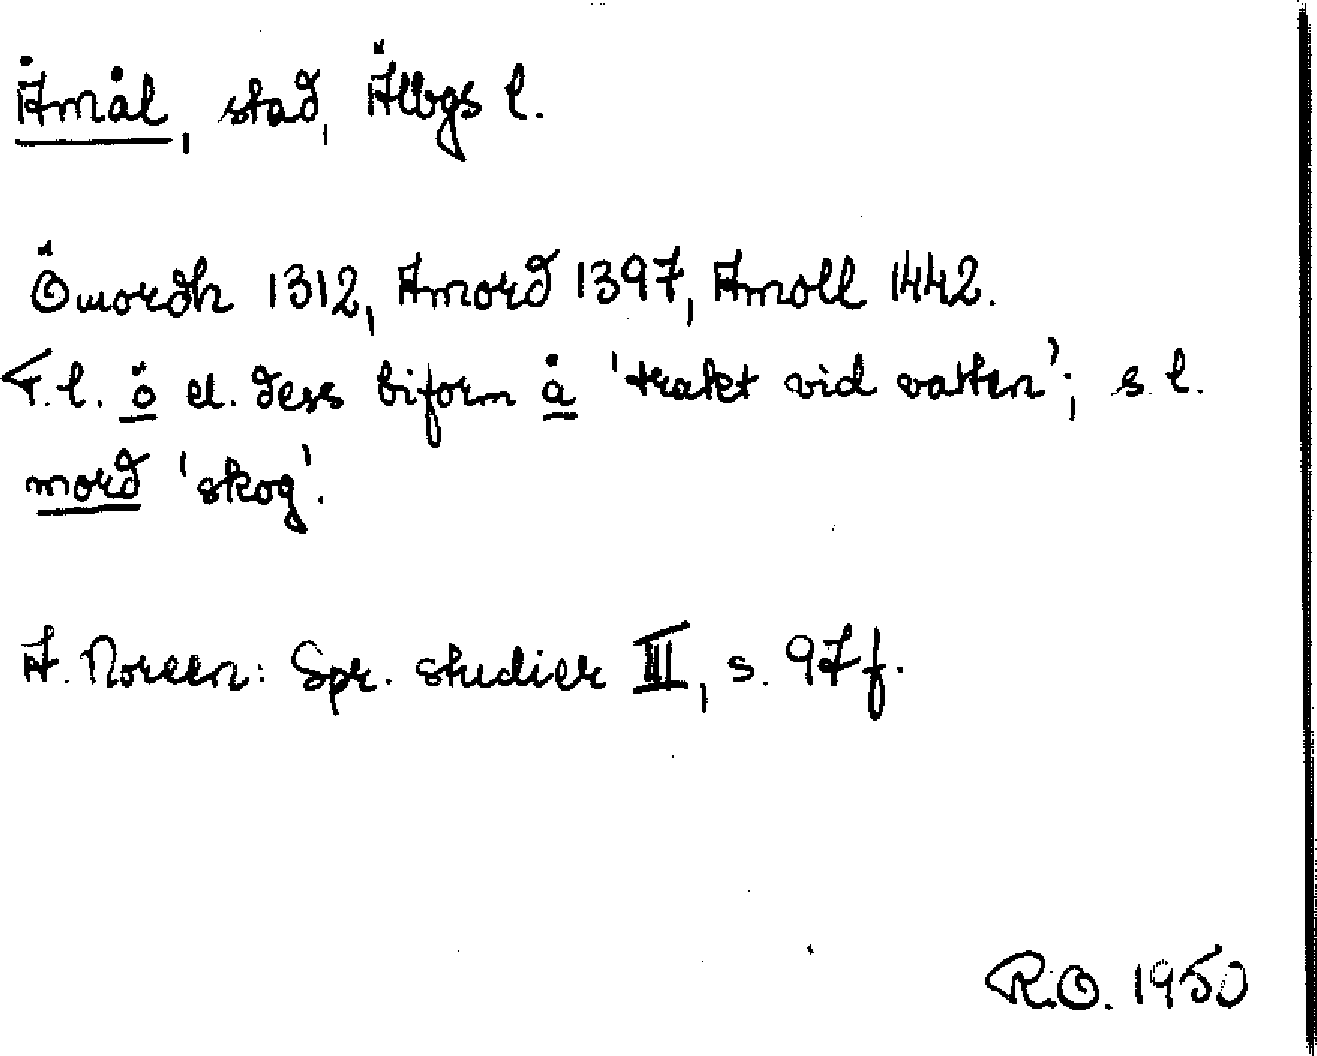 Åmål, stad, Älvbgs l.
Ömordh 1312, Amord 1397, Amoll 1442.
F.l. ö el. dess biform å 'trakt vid vatten'; s.l.
mord 'skog'.
A. Noreen: Spr. studier III, s. 97 f.
R.O. 1950